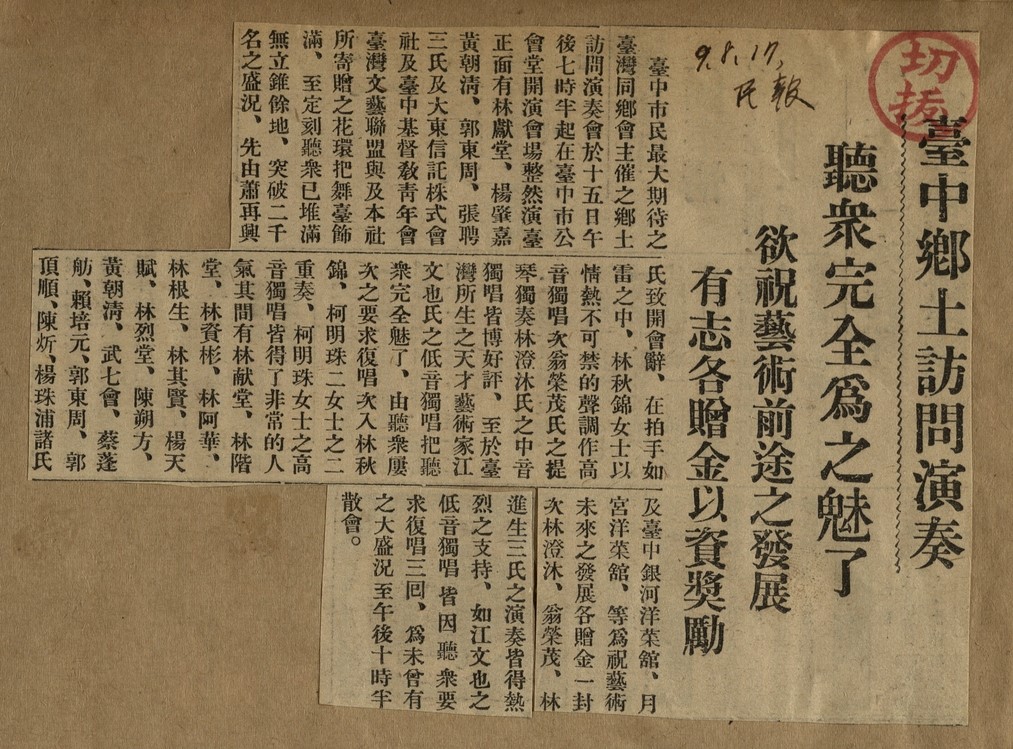 切
抜
9.8.17,
民報
臺中鄉土訪問演奏
聽衆完全爲之魅了
欲祝藝術前途之發展
有志各贈金以資奬勵
臺中市民最大期待之
臺灣同鄉會主催之鄉土
訪問演奏會於十五日午
後七時半起在臺中市公
會堂開演會場整然演臺
正面有林獻堂、楊肇嘉
黃朝淸、郭東周、張聘
三氏及大東信託株式會
社及臺中基督敎靑年會
臺灣文藝聯盟與及本社
所寄贈之花環把舞臺飾
滿、至定刻聽衆已堆滿
無立錐餘地、突破二千
名之盛况、先由蕭再興
氏致開會辭、在拍手如
雷之中、林秋錦女士以
情熱不可禁的聲調作高
音獨唱次翁榮茂氏之提
琴獨奏林澄沐氏之中音
獨唱皆博好評、至於臺
灣所生之天才藝術家江
文也氏之低音獨唱把聽
衆完全魅了、由聽衆屢
次之要求復唱次入林秋
錦、柯明珠二女士之二
重奏、柯明珠女士之高
音獨唱皆得了非常的人
氣其間有林献堂、林階
堂、林資彬、林阿華、
林根生、林其賢、楊天
賦、林烈堂、陳朔方、
黃朝淸、武七會、蔡蓬
舫、賴培元、郭東周、郭
頂順、陳炘、楊珠浦諸氏
及臺中銀河洋菜舘、月
宮洋菜舘、等爲祝藝術
未來之發展各贈金一封
次林澄沐、翁榮茂、林
進生三氏之演奏皆得熱
烈之支持、如江文也之
低音獨唱皆因聽衆要
求復唱三回、爲未曾有
之大盛况至午後十時半
散會。